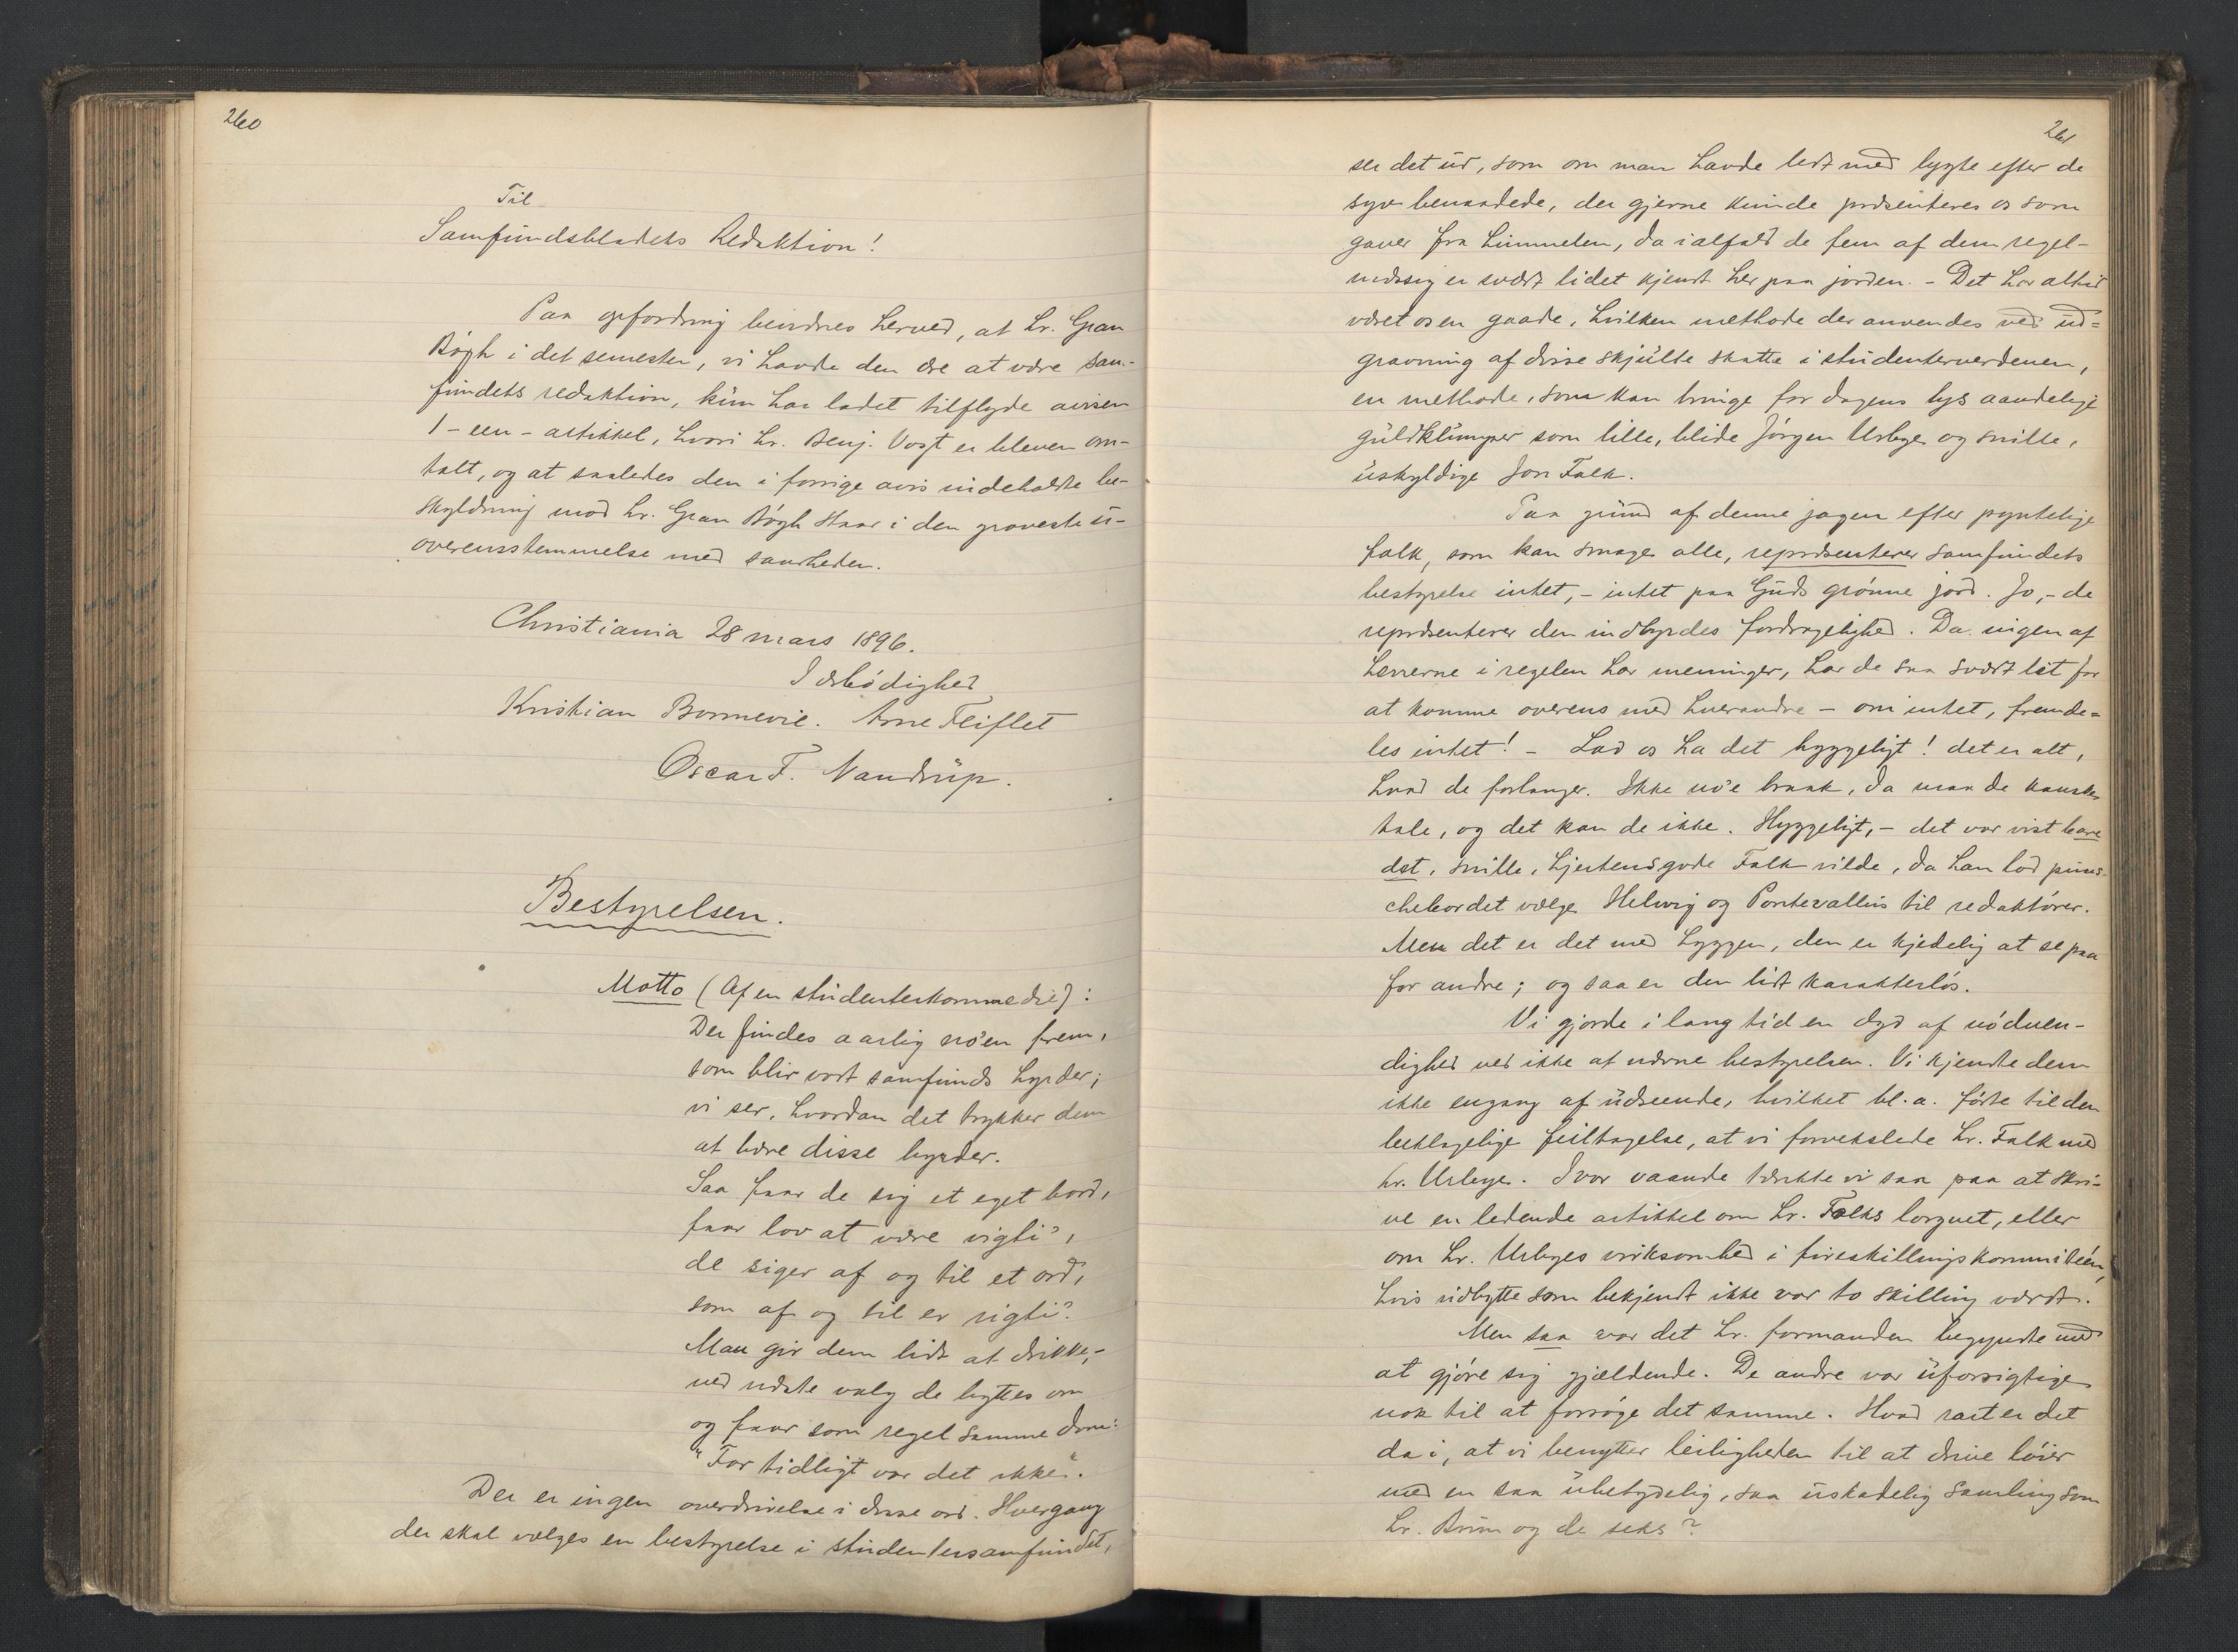 260
Til
Samfundsbladets Redaktion!
Paa opfordring bevidnes herved, at hr. Gran
Bøgh i det semester, vi havde den ære at være sam-
fundets redaktion, kun har ladet tilflyde avisen
1 - een - artikkel, hvori hr. Benj. Vogt er bleven om-
talt, og at saaledes den i forrige avis indeholdte be-
skyldning mod hr. Gran Bøgh staar i den groveste u-
overensstemmelse med sandheden.
Christiania 28 mars 1896.
I ærbødighed
Kristian Bonnevie. Arne Fliflet
Oscar F. Nandrup.
Bestyrelsen.
Motto (Af en studenterkommedie):
Der findes aarlig no'en frem,
som blir vort samfunds hyrder;
vi ser, hvordan det trykker dem
at bære disse byrder.
Saa faar de sig et eget bord,
faar lov at være vigti',
de siger af og til et ord,
som af og til er rigti'.
Man gir dem lidt at drikke,-
ved næste valg de byttes om
og faar som regel samme dom:
"For tidligt var det ikke".
Der er ingen overdrivelse i disse ord. Hvergang
der skal vælges en bestyrelse i studentersamfundet,
261
ser det ud, som om man havde ledt med lygte efter de
syv benaadede, der gjerne kunde præsenteres os som
gaver fra himmelen, da ialfald de fem af dem regel-
mæssig er svært lidet kjendt her paa jorden. - Det har altid
været os en gaade, hvilken methode der anvendes ved ud=
gravning af disse skjulte skatte i studenterverdenen,
en methode, som kan bringe for dagens lys aandelige
guldklumper som lille, blide Jørgen Urbye og snille,
uskyldige Jon Falk.
Paa grund af denne jagen efter pyntelige
folk, som kan smage alle, repræsenterer samfundets
bestyrelse intet, - intet paa Guds grønne jord. Jo, - de
repræsenterer den indbyrdes fordragelighed. Da ingen af
herrerne i regelen har meninger, har de saa svært let for
at komme overens med hverandre - om intet, fremde=
les intet! - Lad os ha det hyggeligt! det er alt,
hvad de forlanger. Ikke no'e braak, da maa de kanske
tale, og det kan de ikke. Hyggeligt, - det var vist bare
det, snille, hjertensgode Falk vilde, da han lod puns-
chebordet vælge Helvig og Pontevallin til redaktører.
Men det er det med hyggen, den er kjedelig at se paa
for andre; og saa er den lidt karakterløs.
Vi gjorde i lang tid en dyd af nødven-
dighed ved ikke at nævne bestyrelsen. Vi kjendte dem
ikke engang af udseende, hvilket bl. a. førte til den
beklagelige feiltagelse, at vi forvekslede hr. Falk med
hr. Urbye. I vor vaande tænkte vi saa paa at skri-
ve en ledende artikkel om hr. Falks lorgnet, eller
om hr. Urbyes virksomhed i fireskillingskommiteén,
hvis udbytte som bekjendt ikke var to skilling værdt.
Men saa var det hr. formanden begyndte med
at gjøre sig gjældende. De andre var uforsigtige
nok til at forsøge det samme. Hvad rart er det
da i, at vi benytter leiligheden til at drive løier
med en saa ubetydelig, saa uskadelig samling som
hr. Bruun og de seks?